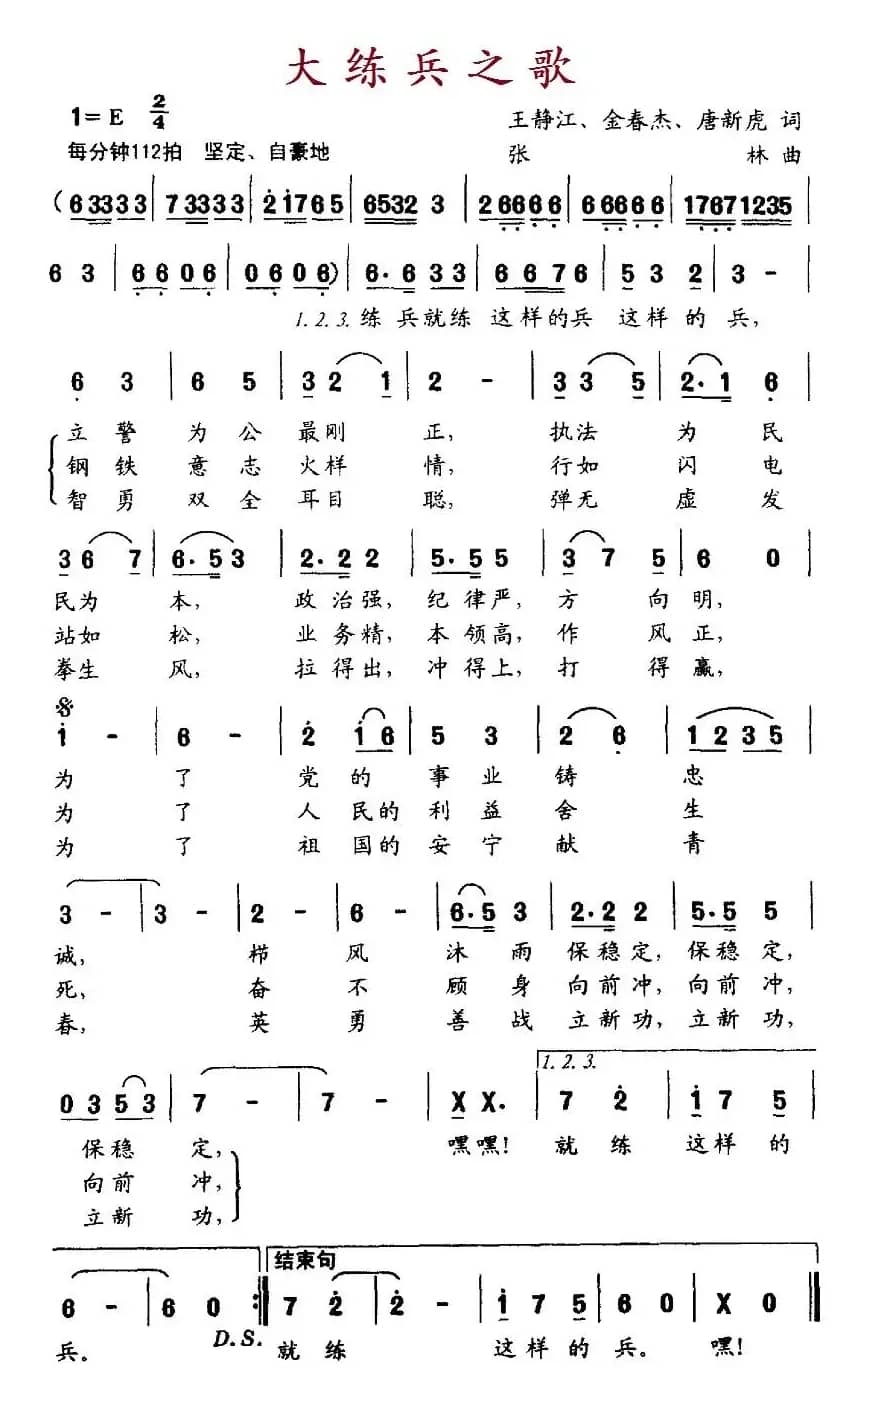 大练兵之歌
1=E 2/4
王静江、金春杰、唐新虎 词
每分钟112拍 坚定、自豪地
张 林 曲
(63333|73333|2i765|6532 3|26666|66666|17671235|
6 3|6606|0606)|6·633|6676|53 2|3 -|
1.2.3.练兵就练 这样的兵 这样的兵,
6 3|6 5|32 1|2 -|33 5|2·1 6|
立警为公最刚正,执法为民
钢铁意志火样情,行如闪电
智勇双全耳目聪,弹无虚发
36 7|6·53|2·22|5·55|37 5|6 0|
民为本,政治强,纪律严,方向明,
站如松,业务精,本领高,作风正,
拳生风,拉得出,冲得上,打得赢,
i -|6 -|2 i6|5 3|2 6|1235|
为了党的事业铸忠
为了人民的利益舍生
为了祖国的安宁献青
3 -|3 -|2 -|6 -|6·53|2·22|5·55|
诚,栉风沐雨保稳定,保稳定,
死,奋不顾身向前冲,向前冲,
春,英勇善战立新功,立新功,
1.2.3.
0353|7 -|7 -|X X.|7 2|i7 5|
保稳定,嘿嘿!就练这样的
向前冲,
立新功,
结束句
6 -|6 0:|7 2|2 -|i7 5|6 0|X 0|
D.S.
兵。就练这样的兵。嘿!